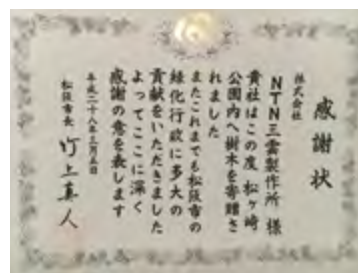 感謝状
株式会社
NTN三雲製作所 様
貴社はこの度 松ヶ崎
公園内へ樹木を寄贈さ
れました
またこれまでも松阪市の
緑化行政に多大の
貢献をいただきました
よってここに深く
感謝の意を表します
平成二十八年三月五日
松阪市長 竹上真人